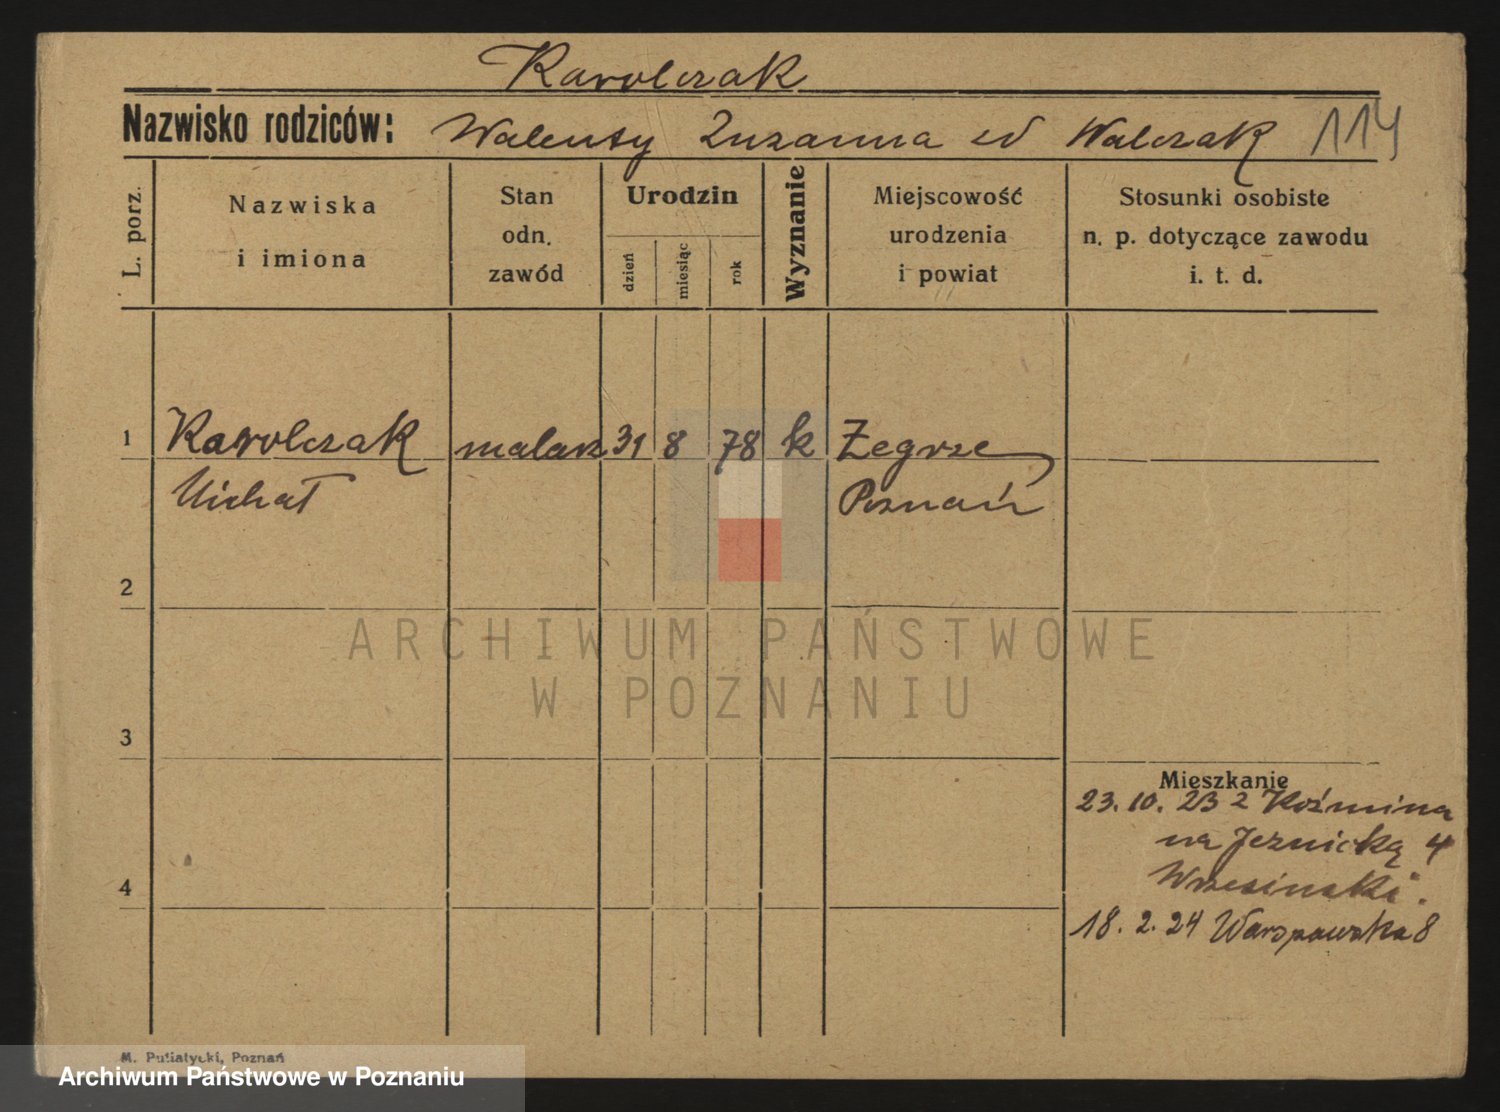 Karolczak
Nazwisko rodziców: Walenty Zuzanna zd Walczak 114
L. porz.
Nazwiska
i imiona
Stan
odn.
zawód
Urodzin
dzień
miesiąc
rok
Wyznanie
Miejscowość
urodzenia
i powiat
Stosunki osobiste
n. p. dotyczące zawodu
i. t. d.
1 Karolczak malarz 31 8 78 k Żegrze
Michał Poznań
2
ARCHIWUM PAŃSTWOWE
W POZNANIU
3
Mieszkanie
23. 10. 23 z Koźmina
na Jeżnicką 4
4
Wrzesinski.
18. 2. 24 Warszawska 8
M. Putiatycki, Poznań
Archiwum Państwowe w Poznaniu